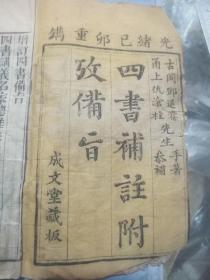 光緒己卯重鐫
古岡鄧退菴先生手著
甬上仇滄柱 參補
四書補註附
攷備旨
成文堂藏板
增訂四書備旨